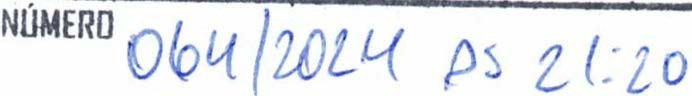 NÚMERO 064/2024 às 21:20